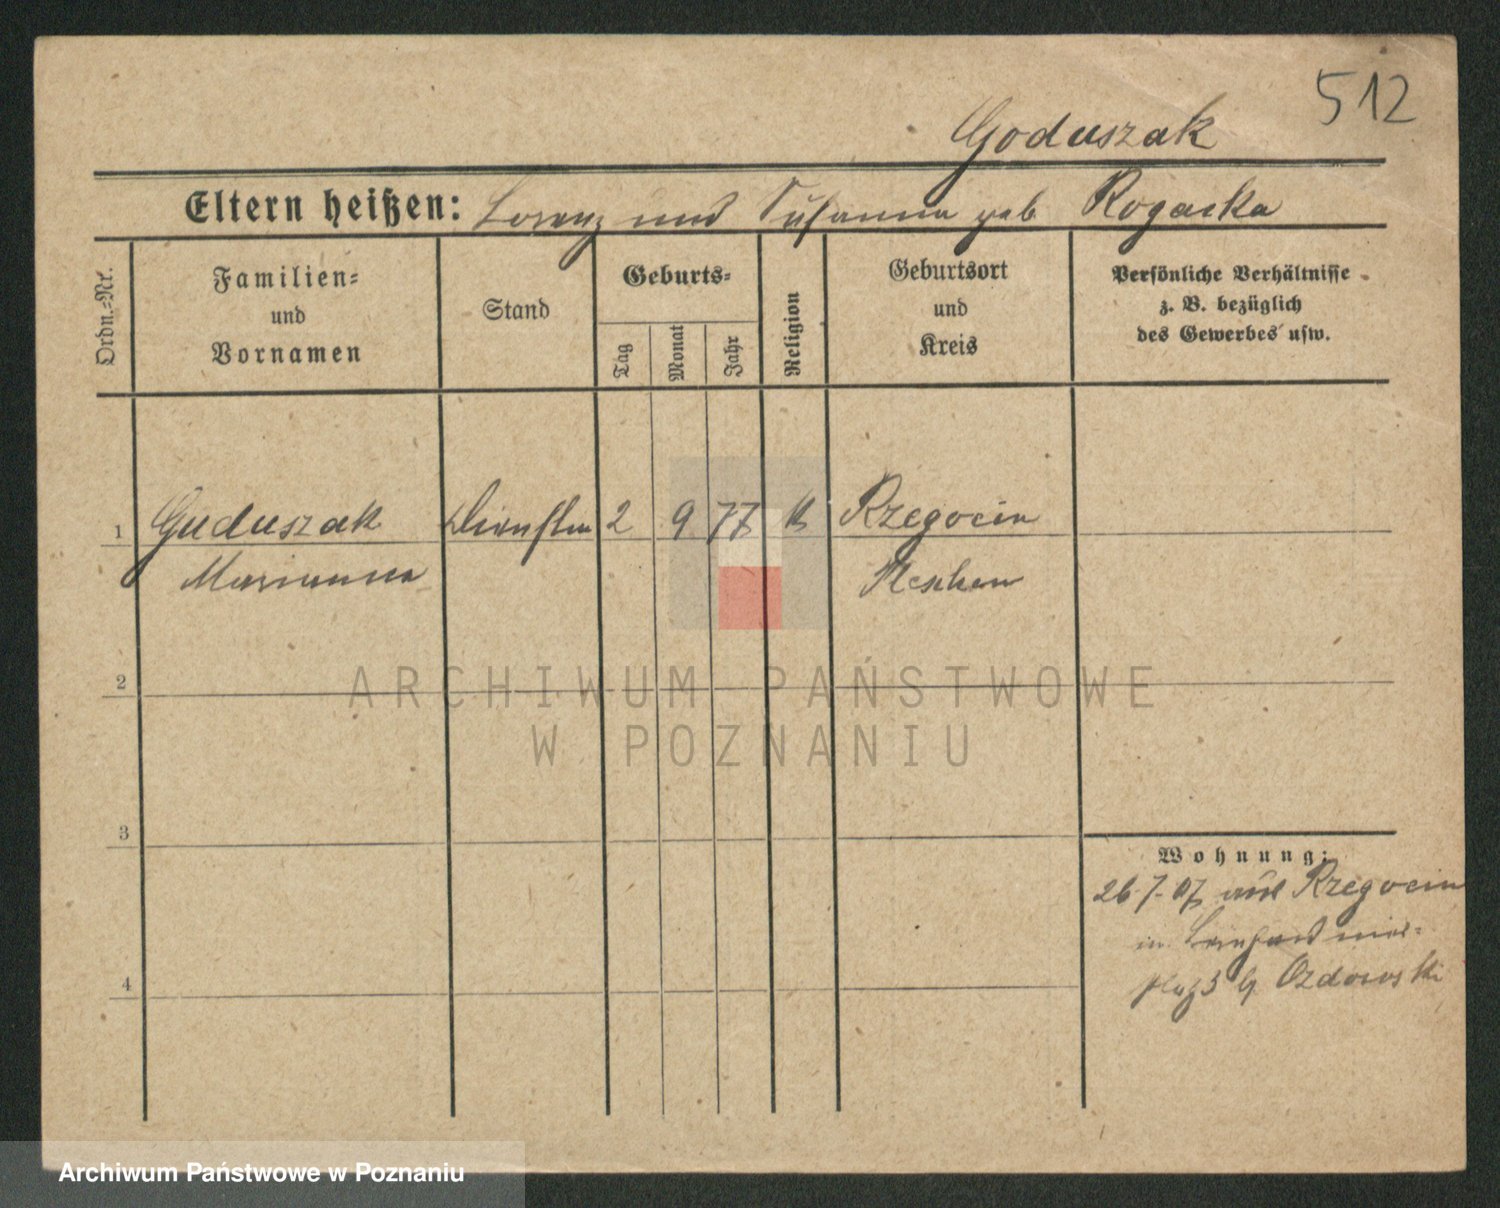 512
Goduszak
Eltern heißen: Lorenz und Susanna geb Rogacka
Ordn.-Nr.
Familien-
und
Vornamen
Stand
Geburts-
Tag
Monat
Jahr
Religion
Geburtsort
und
Kreis
Persönliche Verhältnisse
z. B. bezüglich
des Gewerbes usw.
1 Guduszak 2 9 77 k Rzegocin
Marianna Pleschen
2
ARCHIWUM PAŃSTWOWE
W POZNANIU
3
Wohnung:
26.7.07 aus Rzegocin
in
4
3 b Ozdowski
Archiwum Państwowe w Poznaniu